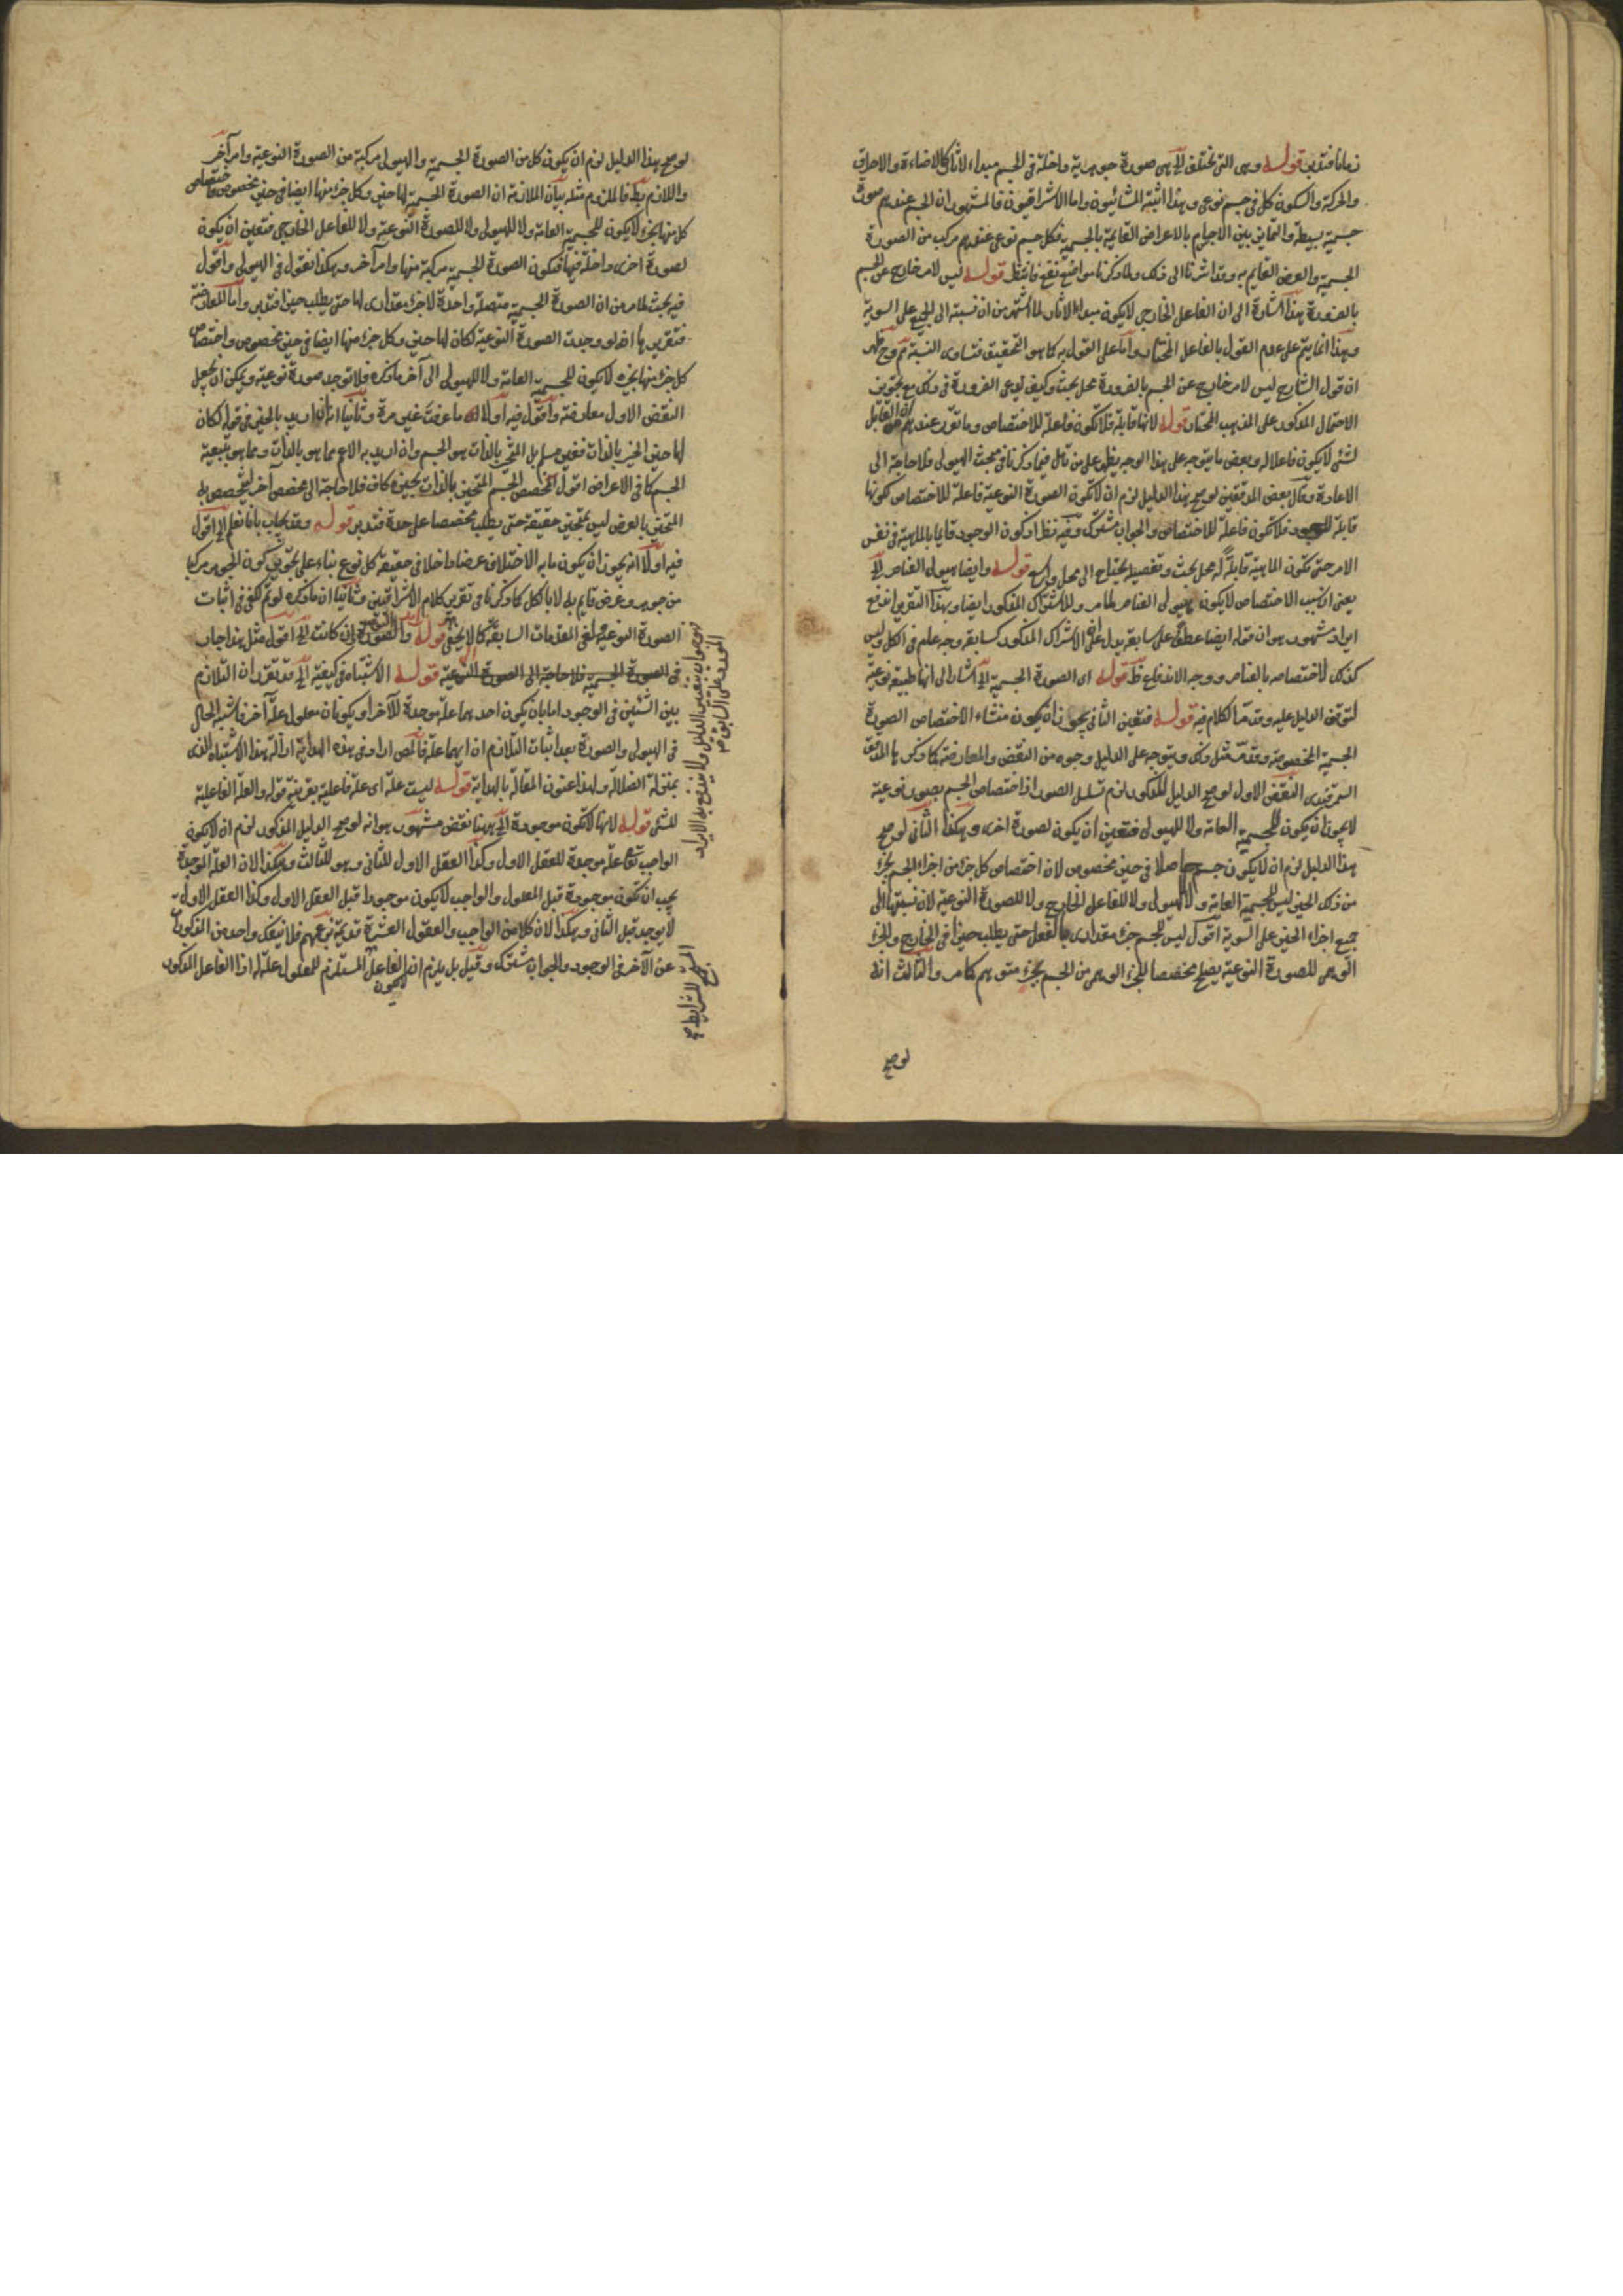 زمانا فتدبر قوله وهى التى تختلف الخ هى صورة جوهرية داخلة فى الجسم مبداء لاثار كالاضاءة والاحراق
والحركة والسكون كل فى جسم نوعى وهذا اثبته المشائيون واما الاشراقيون فالمشهور ان الجسم عندهم صورة
جسمية بسيطة والتمايز بين الاجسام بالاعراض القائمة بالجسمية فكل جسم نوعى عندهم مركب من الصورة
الجسمية والعرض القايم به وقد اشرنا الى ذلك ولما ذكرنا مواضع نفع فانتظر قوله ليس لامر خارج عن الجسم
بالضرورة هذا اشارة الى ان الفاعل الخارجى لا يكون مبداء الاثار لما اشتهر من ان نسبته الى الجميع على السوية
وهذا انما يتم على عدم القول بالفاعل المختار واما على القول به كما هو التحقيق فتساوى النسبة مم وح ظهر
ان قول الشارح ليس لامر خارج عن الجسم بالضرورة محل بحث وكيف يدعى الضرورة فى ذلك مع تجويز
الاحتمال المذكور على المذهب المختار قوله لانها قابلة فلا تكون فاعلة للاختصاص وما تقرر عندهم ان القابل
لشئ لا يكون فاعلا له وبعض ما يتوجه على هذا الوجه يظهر على من تامل فيما ذكرنا فى مبحث الهيولى فلا حاجة الى
الاعادة وقال بعض المدققين لو صح هذا الدليل لزم ان لا تكون الصورة النوعية فاعلة للاختصاص لكونها
قابلة للوجود فلا تكون فاعلة للاختصاص والجواب مشترك وفيه نظر اذ كون الوجود قايما بالماهية فى نفس
الامر حتى تكون الماهية قابلة له محل بحث وتفصيله يحتاج الى محل واسع قوله وايضا هيولى العناصر الخ
يعنى ان سبب الاختصاص لا يكون هيولى العناصر لما مر وللاشتراك المذكور ايضا وبهذا التقرير اندفع
ايراد مشهور هو ان قوله ايضا عطف على سابقه يدل على ان الاشتراك المذكور كسابقه وجه عام فى الكل وليس
كذلك لاختصاصه بالعناصر ووجه الاندفاع ظ قوله اى الصورة الجسمية الخ اشار الى انها طبيعة نوعية
لتوقف الدليل عليه وقد مر الكلام فيه قوله فتعين الثانى يجوز ان يكون منشاء الاختصاص الصورة
الجسمية المخصوصة وقد مر مثل ذلك ويتوجه على الدليل وجوه من النقض والمعارضة كما ذكره المدقق
السمرقندى النقض الاول لو صح الدليل المذكور لزم تسلسل الصور اذ اختصاص الجسم بصورة نوعية
لا يجوز ان يكون للجسمية العامة ولا للهيولى فتعين ان يكون لصورة اخرى وهكذا الثانى لو صح
هذا الدليل لزم ان لا يكون جسم حاصلا فى حيز مخصوص لان اختصاص كل جزء من اجزاء الجسم بجزء
من ذلك الحيز ليس للجسمية العامة ولا للهيولى ولا للفاعل الخارج ولا للصورة النوعية لان نسبتها الى
جميع اجزاء الحيز على السوية اقول ليس للجسم جزء مقدارى بالفعل حتى يطلب حيزا فى الخارج والجزء
الوهمى للصورة النوعية يصلح مخصصا للجزء الوهمى من الجسم بجزء متوهم كما مر والثالث انه
لو صح
لو صح هذا الدليل لزم ان يكون كل من الصورة الجسمية والهيولى مركبة من الصورة النوعية وامر آخر
واللازم بط فالملزوم مثله بيان الملازمة ان الصورة الجسمية لها حيز وكل جزء منها ايضا فى حيز مخصوص واختصاص
كل منها بجزء لا يكون للجسمية العامة ولا للهيولى ولا للصورة النوعية ولا للفاعل الخارجى فتعين ان يكون
لصورة اخرى داخلة فيها فتكون الصورة الجسمية مركبة منها وامر آخر وهكذا نقول فى الهيولى واقول
فيه بحث لما مر من ان الصورة الجسمية متصلة واحدة لا جزء مقدارى لها حتى يطلب حيزا فتدبر واما المعارضة
فتقريرها انه لو وجدت الصورة النوعية لكان لها حيز وكل جزء منها ايضا فى حيز مخصوص واختصاص
كل جزء منها بجزء لا يكون للجسمية العامة ولا للهيولى الى آخر ما ذكره فلا توجد صورة نوعية ويمكن ان يجعل
النقض الاول معارضة واقول فيه اولا ما عرفت غير مرة وثانيا انه ان اريد بالحيز فى قوله لكان
لها حيز الحيز بالذات فغير مسلم بل المتحيز بالذات هو الجسم وان اريد به الاعم مما هو بالذات ومما هو بتبعية
الجسم كما فى الاعراض اقول المخصص الجسم المتحيز بالذات بحيزه كاف فلا حاجة الى مخصص آخر ليخصص به
المتحيز بالعرض ليس بمتحيز حقيقة حتى يطلب مخصصا على حدة فتدبر قوله وقد يجاب بانا نعلم الخ اقول
فيه اولا انه يجوز ان يكون ما به الاختلاف عرضا داخلا فى حقيقة كل نوع بناء على تجويز كون الجسم مركبا
من جوهر وعرض قايم به لا بالكل كما ذكرنا فى تقرير كلام الاشراقيين وثانيا ان ما ذكره لو تم لكفى فى اثبات
الصورة النوعية ولغى المقدمات السابقة كما لا يخفى قوله والصورة ان كانت الخ اقول مثل هذا جار
فى الصورة الجسمية فلا حاجة الى الصورة النوعية قوله الاشتباه فى كيفية الخ قد تقرر ان التلازم
بين الشيئين فى الوجود اما بان يكون احدهما علة موجدة للآخر او يكونان معلولى علة آخر فاشتبه الحال
فى الهيولى والصورة بعد اثبات التلازم ان ايهما علة فالمص اراد فى هذه الهداية ازالة هذا الاشتباه الذى
بمنزلة الضلالة ولهذا عنون المقالة بالهداية قوله ليست علة اى علة فاعلية بقرينة قوله والعلة الفاعلية
للشئ قوله لانها لا تكون موجودة الخ ههنا نقض مشهور هو انه لو صح الدليل المذكور لزم ان لا يكون
الواجب تعالى علة موجدة للعقل الاول وكذا العقل الاول للثانى وهو للثالث وهكذا لان العلة الموجدة
يجب ان تكون موجودة قبل المعلول والواجب لا يكون موجودا قبل العقل الاول وكذا العقل الاول
لا يوجد قبل الثانى وهكذا لان كلا من الواجب والعقول العشرة قديمة بزعمهم فلا ينفك واحد من المذكورات
عن الآخر فى الوجود والجواب مشترك وقيل بل يلزم ان لا يكون الفاعل المستلزم للمعلول علة له اذ الفاعل المذكور